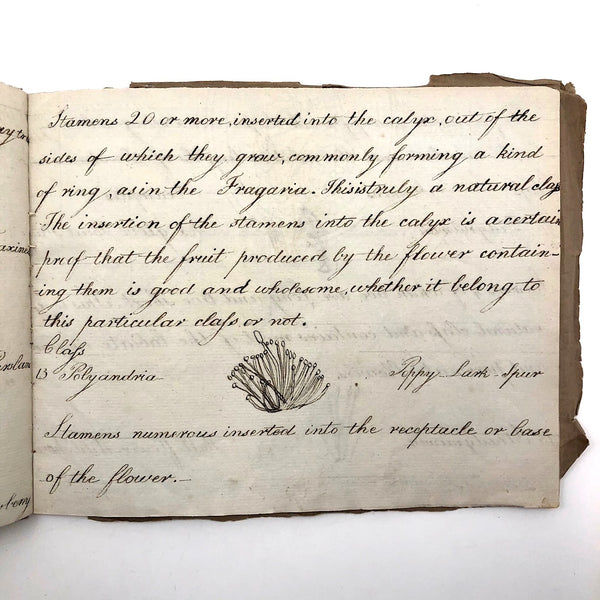 Stamens 20 or more, inserted into the calyx, out of the
sides of which they grow, commonly forming a kind
of ring, as in the Fragaria. This is truly a natural class
The insertion of the stamens into the calyx is a certain
prof that the fruit produced by the flower contain-
ing them is good and wholesome, whether it belong to
this particular class or not.
Class
13 Polyandria Poppy Lark-Spur
Stamens numerous inserted into the receptacle or base
of the flower.